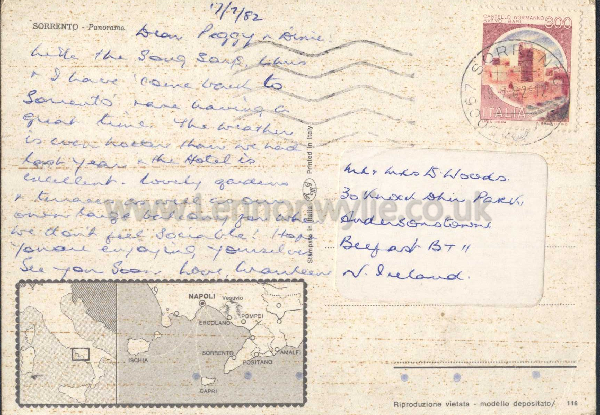 17/7/82
SORRENTO - Panorama
Dear Peggy & Denis
like the song says, Chris
& I have 'come back to
Sorrento' & are having a
great time. The weather
is even hotter than we had
last year & the Hotel is
excellent. Lovely gardens
& terraces
our
we don't feel sociable! Hope
you are enjoying yourselves
See you soon. Love, Maureen
Mr & Mrs D. Woods.
Park,
Andersonstown
Belfast BT11
N. Ireland.
300
ITALIA
SORRENTO
www.LennonWylie.co.uk
Printed in Italy
NAPOLI
Vesuvio
ERCOLANO
POMPEI
ISCHIA
SORRENTO
POSITANO
AMALFI
CAPRI
Riproduzione vietata - modello depositato/ 116